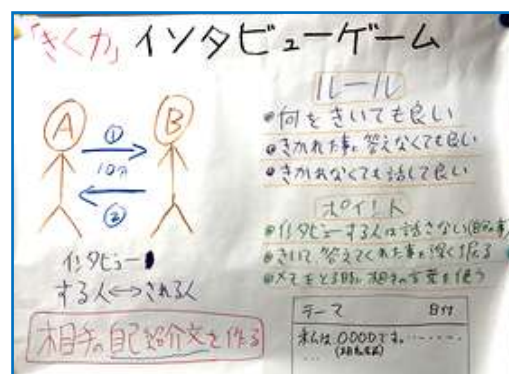 「きく力」インタビューゲーム
A
B
①
10分
②
インタビュー
する人↔される人
相手の自己紹介文を作る
ルール
●何をきいても良い
●きかれた事に答えなくても良い
●きかれなくても話して良い
ポイント
●インタビューする人は話さない(自分の事)
●きいて答えてくれた事を深く掘る
●メモをとる時は相手の言葉を使う
テーマ 日付
私は、〇〇〇〇です。